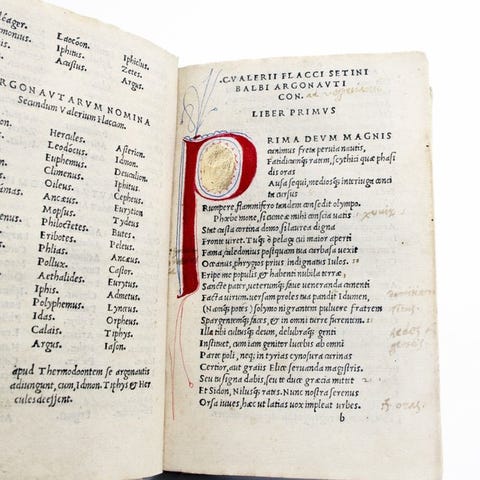 léager. Laocöon. Iphiclus.
monius, Iphitus. Zetes.
Acusius. Argus.
RGONAVTARVM NOMINA
Secundum Valerium Flaccum.
Hercules. Asterion.
Leodocus. Idmon.
Euphemus Deucalion.
Climenus
Oileus. Cepheus.
Ancæus. Eurytion
Mopsus. Tydeus
Philoctetes. Butes.
Eribotes. Peleus.
Phlias. Ancæus.
Pollux. Castor.
Aethalides. Eurytus.
Iphis. Admetus.
Polyphemus Lynceus.
Idas. Orpheus.
Calais. Tiphys.
Argus. Iason.
apud Thermodoontem se argonautis
adiungunt, cum, Idmon. Tiphys & Her
cules acessent.
C.VALERII FLACCI SETINI
BALBI ARGONAVTI
CON.
LIBER PRIMVS
PRIMA DEVM MAGNIS
canimus freta peruia nautis,
Fatidicamq; ratem, scythici quæ phasi
dis oras
Ausa sequi, mediosq; inter iuga conci
ta cursus
Rumpere, flammifero tandem consedit olympo.
Phœbe mone, si cumeæ mihi conscia uatis
Stat casta cortina domo, si laurea digna
Fronte uiret. Tuq; ô pelagi cui maior aperti
Fama, caledonius postquam tua carbasa uexit
Oceanus, phrygios prius indignatus Iulos. 10
Eripe me populis, & habenti nubila terræ,
Sancte pater, ueterumq; faue ueneranda canenti
Facta uirum. uersam proles tua pandit Idumen,
(Nanq; potes) solymo nigrantem puluere fratrem
Spargentemq; faces, & in omni turre furentem.
Ille tibi cultusq; deum, delubraq; genti
Instituet, cum iam genitor lucebis ab omni
Parte poli, neq; in tyrias cynosura carinas
Certior, aut graiis Elice seruanda magistris.
Seu tu signa dabis, seu te duce græcia mittet 20
Et Sidon, Nilusq; rates. Nunc nostra serenus
Orsa iuues, hæc ut latias uox impleat urbes.
b